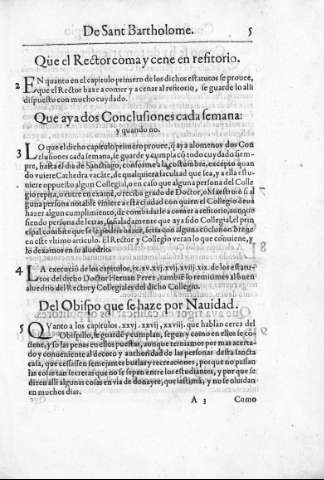 De Sant Bartholome. 5
Que el Rector coma y cene en refitorio.
2 EN quanto en el capitulo primero de los dichos estatutos se prouee,
que el Rector baxe a comer y a cenar al refitorio, se guarde lo alli
dispuesto con mucho cuydado.
Que aya dos Conclusiones cada semana:
y quando no.
3 LO que el dicho capitulo primero prouee, q̃ aya alomenos dos Con
clusiones cada semana, se guarde y cumpla cõ todo cuydado siem-
pre, hasta el dia de Santiago, conforme a la costumbre, excepto quan
do vuiere Cathedra vacãte, de qualquiera facultad que sea, y a ella estu-
uiere oppuesto algun Collegial, o en caso que alguna persona del Colle
gio repita, o entre en examẽ, o reciba grado de Doctor, o Maestro: o si al
guna persona notable viniere a esta ciudad con quien el Collegio deua
hazer algun cumplimiento, de combidarle a comer a refitorio, aunque
siendo persona de letras, señaladamente que aya sido Collegial, el prin
cipal combite que se le podria hazer, seria con alguna cõclusion breue
en este vltimo articulo. El Rector y Collegio veran lo que conuiene, y
lo dexamos en su aluedrio.
4 LA execuciõ de los capitulos, ix. xv. xvj. xvij. xviij. xix. de los estatu-
tos del dicho Doctor Hernan Perez, tambiẽ lo remitimos al buen
aluedrio del Rector y Collegiales del dicho Collegio.
Del Obispo que se haze por Nauidad.
5 QVanto a los capitulos. xxvj. xxvij. xxviij. que hablan cerca del
Obispillo, se guarde y cumplan, segun y como en ellos se cõ
tiene, y so las penas en ellos puestas, aunque terniamos por mas acerta-
do y conueniente al decoro y authoridad de las personas desta sancta
casa, que cessassen semejantes burlas y recreaciones, porque no passan
las cosas tan secretas que no se sepan entre los estudiantes, y porque se
dizen alli algunas cosas en via de donayre, que lastimã, y no se oluidan
en muchos dias.
A 3 Como